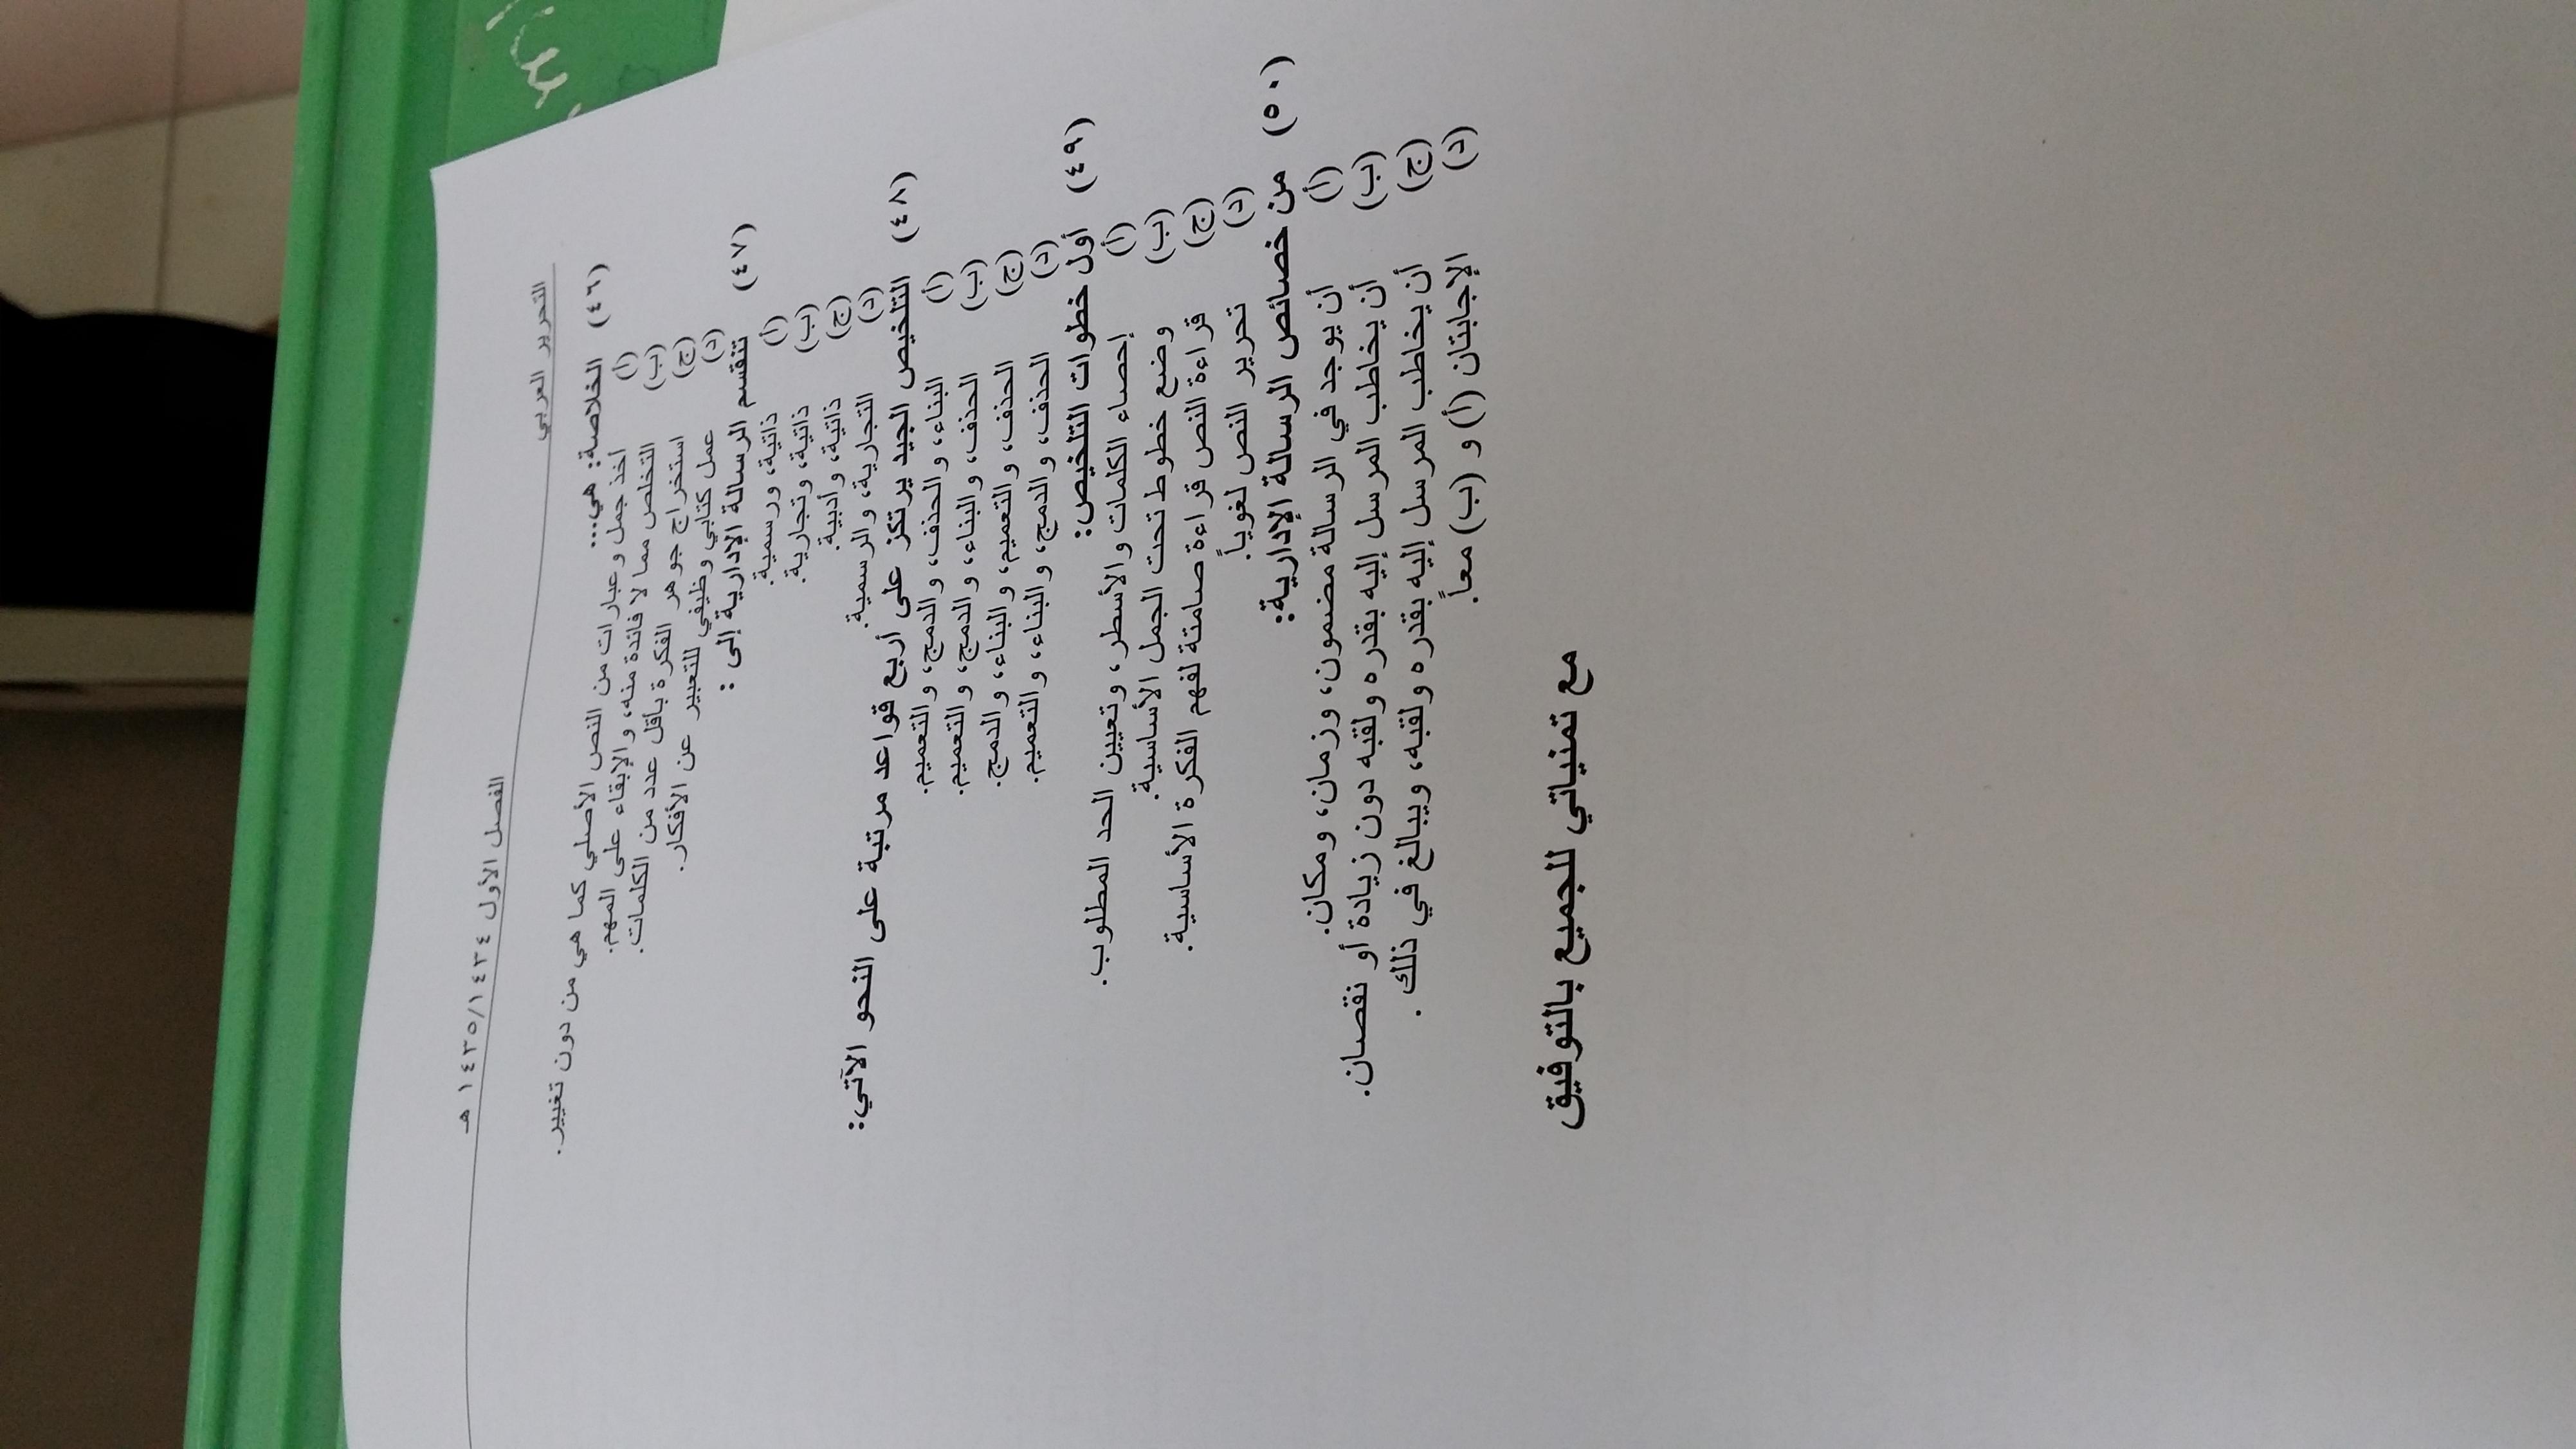 التحرير العربي
الفصل الأول ١٤٣٥/١٤٣٤ هـ
(٤٦) الخلاصة: هي...
(أ) أخذ جمل وعبارات من النص الأصلي كما هي من دون تغيير.
(ب) التخلص مما لا فائدة منه، والإبقاء على المهم.
(ج) استخراج جوهر الفكرة بأقل عدد من الكلمات.
(د) عمل كتابي وظيفي للتعبير عن الأفكار.
(٤٧) تنقسم الرسالة الإدارية إلى :
(أ) ذاتية، ورسمية.
(ب) ذاتية، وتجارية.
(ج) ذاتية، وأدبية.
(د) التجارية، والرسمية.
(٤٨) التلخيص الجيد يرتكز على أربع قواعد مرتبة على النحو الآتي:
(أ) البناء، والحذف، والدمج، والتعميم.
(ب) الحذف، والبناء، والدمج، والتعميم.
(ج) الحذف، والتعميم، والبناء، والدمج.
(د) الحذف، والدمج، والبناء، والتعميم.
(٤٩) أول خطوات التلخيص:
(أ) إحصاء الكلمات والأسطر، وتعيين الحد المطلوب.
(ب) وضع خطوط تحت الجمل الأساسية.
(ج) قراءة النص قراءة صامتة لفهم الفكرة الأساسية.
(د) تحرير النص لغوياً.
(٥٠) من خصائص الرسالة الإدارية:
(أ) أن يوجد في الرسالة مضمون، وزمان، ومكان.
(ب) أن يخاطب المرسل إليه بقدره ولقبه دون زيادة أو نقصان.
(ج) أن يخاطب المرسل إليه بقدره ولقبه، ويبالغ في ذلك .
(د) الإجابتان (أ) و (ب) معاً.
مع تمنياتي للجميع بالتوفيق